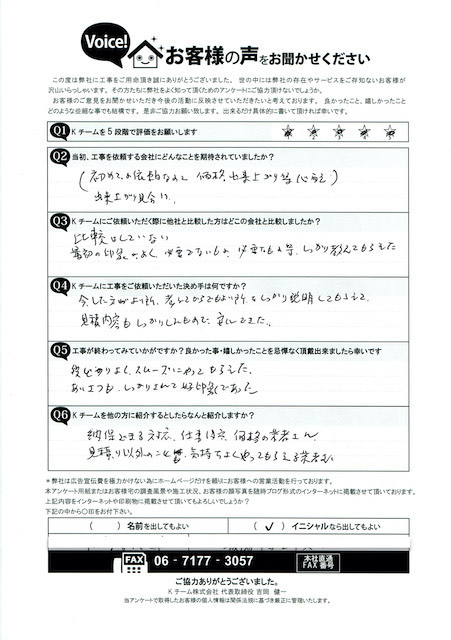 Voice!
お客様の声をお聞かせください
この度は弊社に工事をご用命頂き誠にありがとうございました。世の中には弊社の存在やサービスをご存知ないお客様が
沢山いらっしゃいます。その方たちに弊社をよく知って頂くためのアンケートにご協力頂けないでしょうか。
お客様のご意見をお聞かせいただき今後の活動に反映させていただきたいと考えております。良かったこと、嬉しかったこと
どのような些細な事でも結構です。是非ご協力お願い致します。出来るだけ具体的に書いて頂ければ幸いです。
Q1 Kチームを5段階で評価をお願いします
Q2 当初、工事を依頼する会社にどんなことを期待されていましたか?
(初めての依頼なので 価格、出来上がり等 心配)
出来上がり具合
Q3 Kチームにご依頼いただく際に他社と比較した方はどこの会社と比較しましたか?
比較はしていない
最初の印象がよく、必要でないもの、必要なもの等、しっかり教えてもらえた
Q4 Kチームに工事をご依頼いただいた決め手は何ですか?
今した方がよい所、考えてからでもよい所、としっかり説明してもらえて、
見積内容もしっかりしたもので、安心できた。
Q5 工事が終わってみていかがですか?良かった事・嬉しかったことを忌憚なく頂戴出来ましたら幸いです
段どりよく、スムーズにやってもらえた。
あいさつも、しっかりされて好印象であった
Q6 Kチームを他の方に紹介するとしたらなんと紹介しますか?
納得できる対応、仕事内容、価格の業者さん
見積り以外のことも、気持ちよくやってもらえる業者さん
*弊社は広告宣伝費を極力かけない為にホームページだけを頼りにお客様への営業活動を行っております。
本アンケート用紙またはお客様宅の調査風景や施工状況、お客様の顔写真を随時ブログ形式のインターネットに掲載させて頂いております。
上記内容をインターネットや印刷物に掲載させて頂いてもよろしいでしょうか?
下記の中から〇印をお付下さい。
( ) 名前を出してもよい ( ✓ ) イニシャルなら出してもよい
FAX 06-7177-3057 本社直通 FAX番号
ご協力ありがとうございました。
Kチーム株式会社 代表取締役 吉岡 健一
当アンケートで取得したお客様の個人情報は関係法規に基づき厳正に管理いたします。